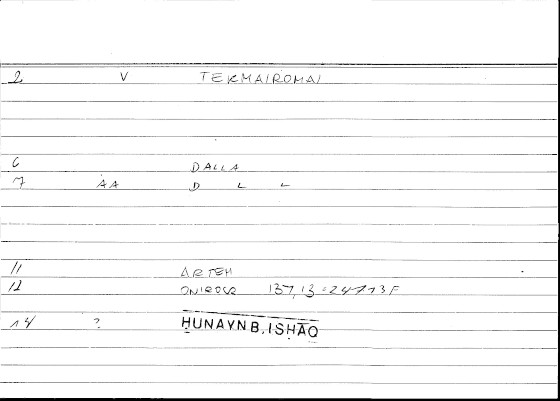 2 V TEKMAIROMAI
6 DALLA
7 AA D L L
11 ARTEM
12 ONIROCR 137,13 = 247 13 F
14 ? ḤUNAYN B. ISḤĀQ